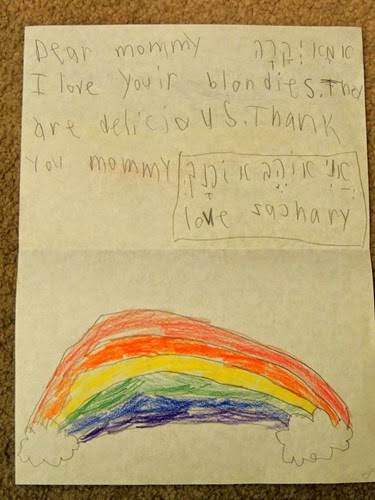 Dear mommy אמא יקרה
I love youir blondies. They
are delicious. Thank
you mommy אני אוהב אותך
love zachary